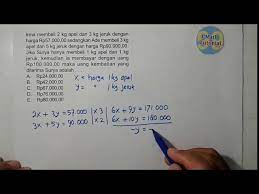 Irma membeli 2 kg apel dan 3 kg jeruk dengan
harga Rp57.000,00 sedangkan Ade membeli 3 kg
apel dan 5 kg jeruk dengan harga Rp90.000,00.
Jika Surya hanya membeli 1 kg apel dan 1 kg
jeruk, kemudian ia membayar dengan uang
Rp100.000,00 maka uang kembalian yang
diterima Surya adalah
A. Rp24.000,00
B. Rp42.000,00
C. Rp67.000,00
D. Rp76.000,00
E. Rp80.000,00
EMath
Tutorial
x = harga 1 kg apel
y = " 1 kg jeruk
2x + 3y = 57.000 | x 3 | 6x + 9y = 171.000
3x + 5y = 90.000 | x 2 | 6x + 10y = 180.000
-y = -